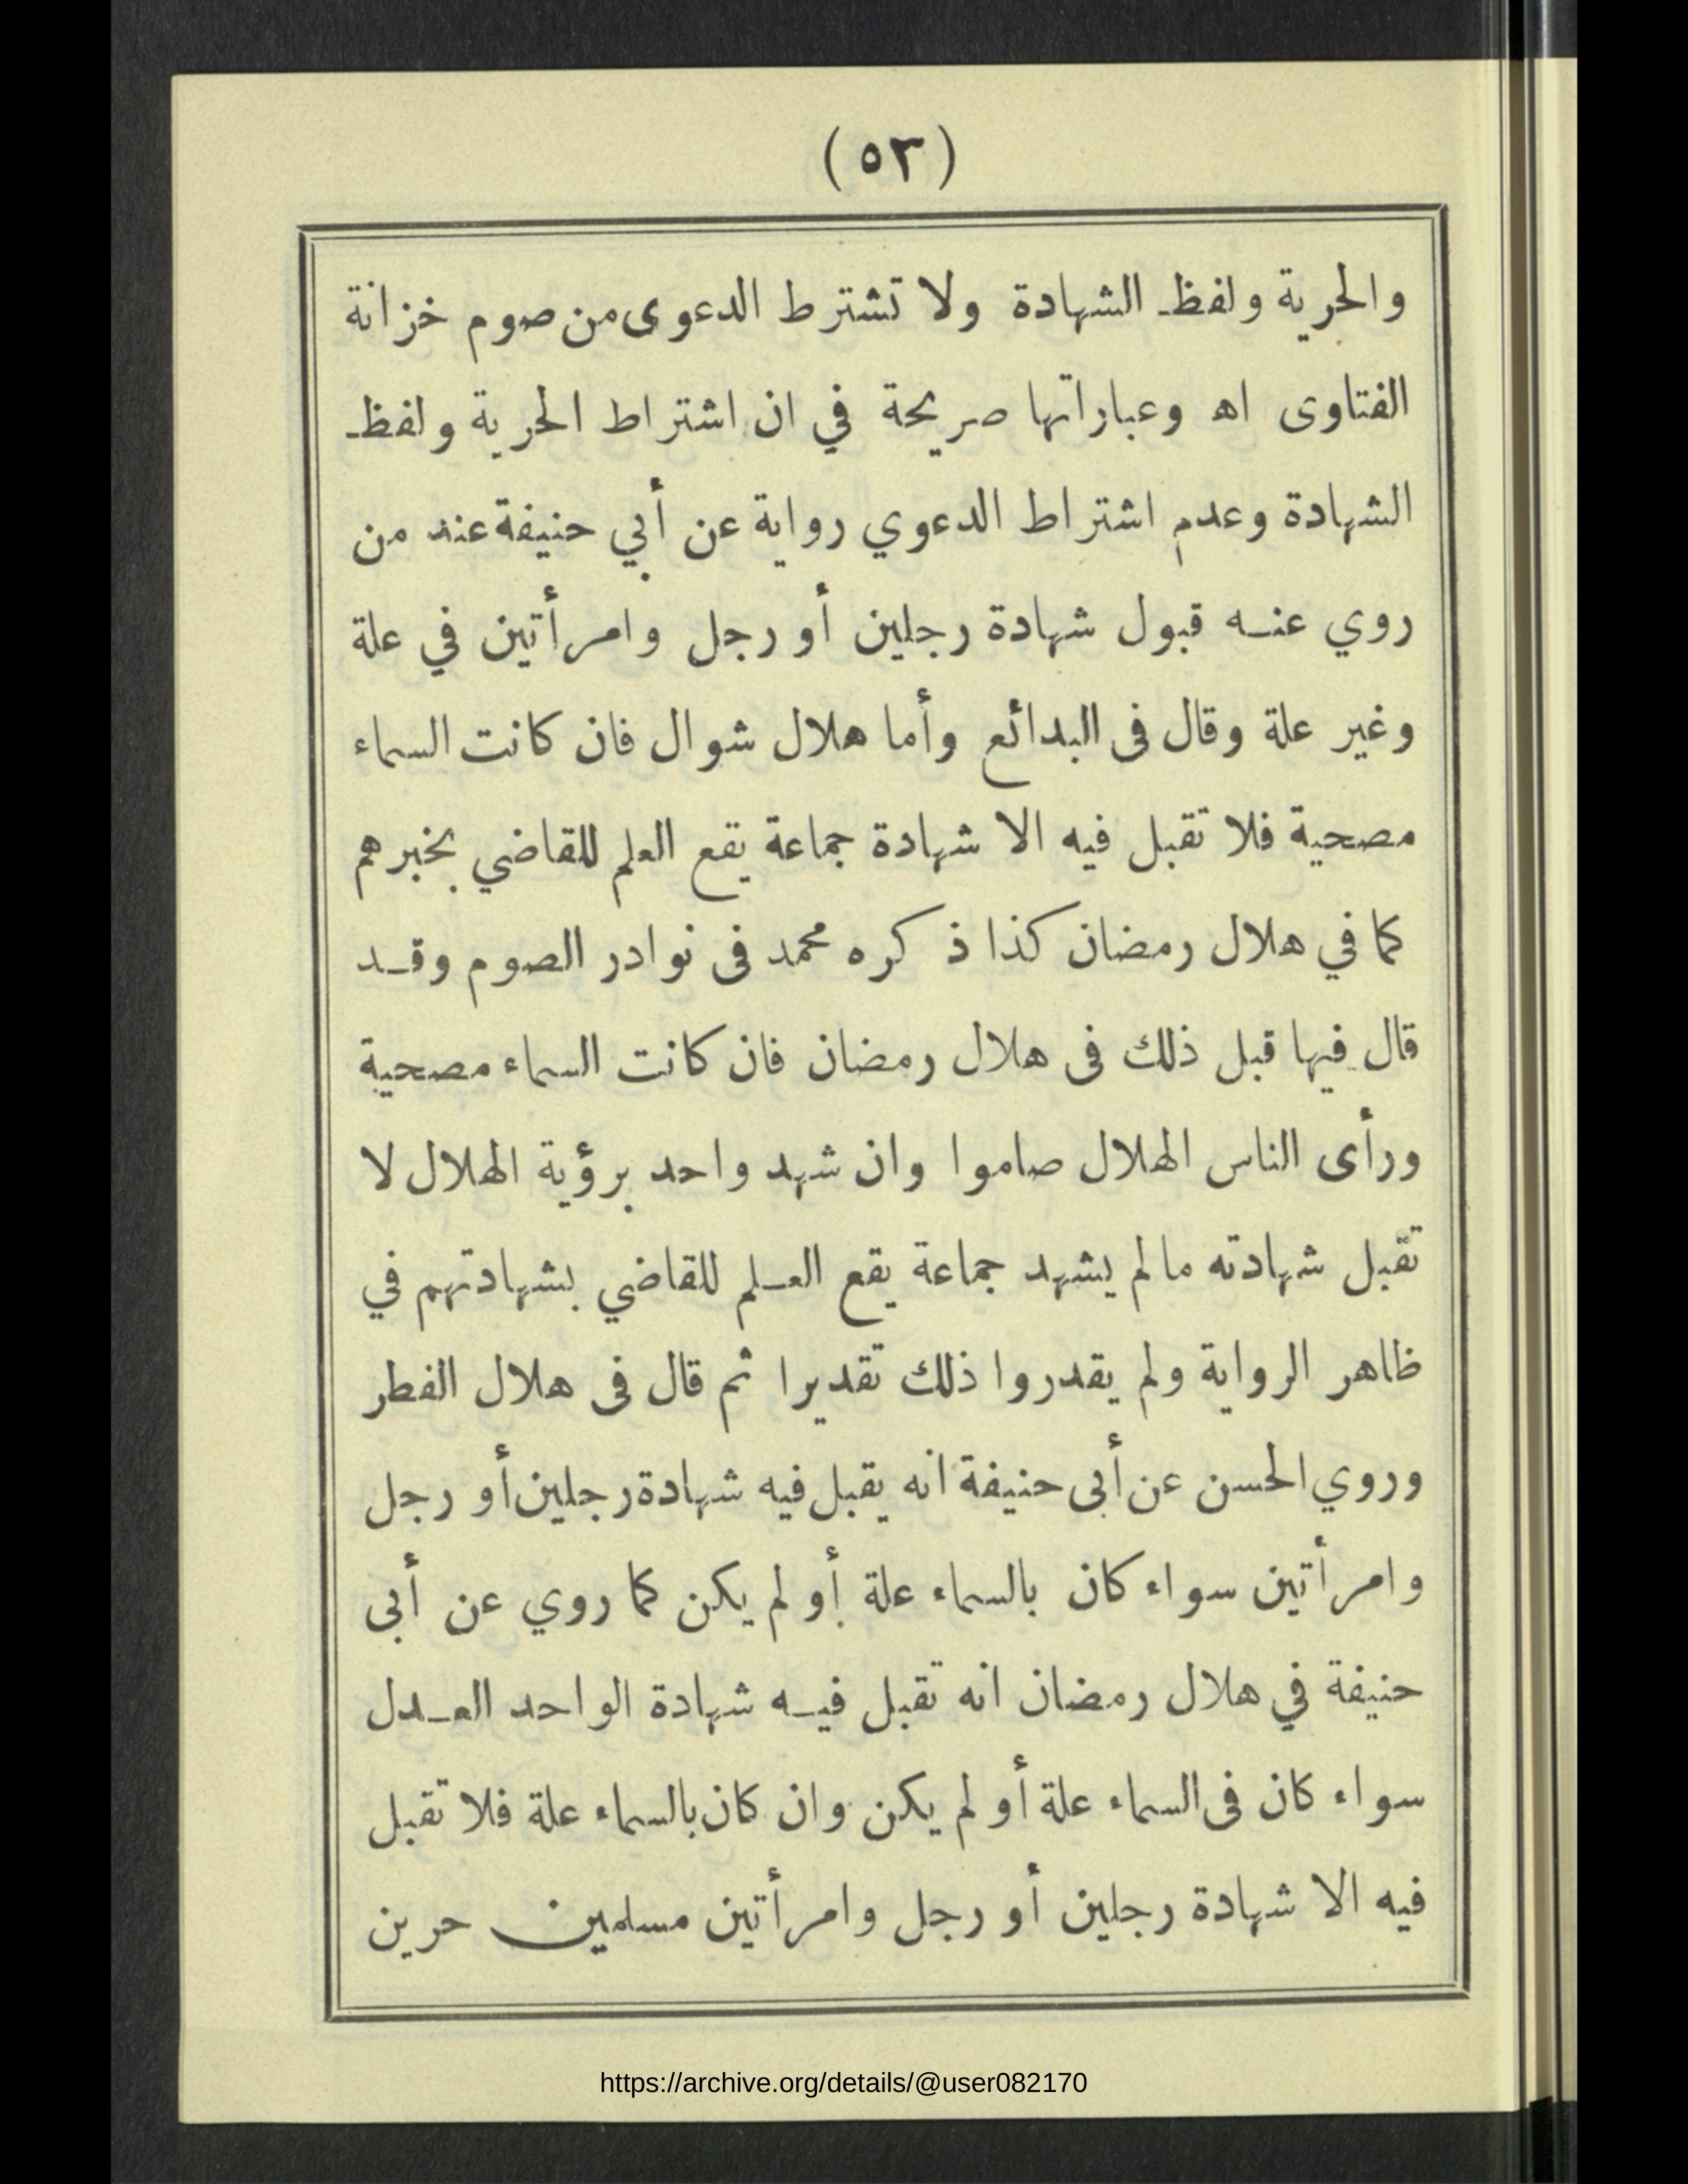 (٥٣)
والحرية ولفظ الشهادة ولا تشترط الدعوى من صوم خزانة
الفتاوى اه وعباراتها صريحة في ان اشتراط الحرية ولفظ
الشهادة وعدم اشتراط الدعوي رواية عن أبي حنيفة عند من
روي عنه قبول شهادة رجلين أو رجل وامرأتين في علة
وغير علة وقال فى البدائع وأما هلال شوال فان كانت السماء
مصحية فلا تقبل فيه الا شهادة جماعة يقع العلم للقاضي بخبرهم
كما في هلال رمضان كذا ذكره محمد فى نوادر الصوم وقد
قال فيها قبل ذلك فى هلال رمضان فان كانت السماء مصحية
ورأى الناس الهلال صاموا وان شهد واحد برؤية الهلال لا
تقبل شهادته مالم يشهد جماعة يقع العلم للقاضي بشهادتهم في
ظاهر الرواية ولم يقدروا ذلك تقديرا ثم قال فى هلال الفطر
وروي الحسن عن أبى حنيفة انه يقبل فيه شهادة رجلين أو رجل
وامرأتين سواء كان بالسماء علة أو لم يكن كما روي عن أبى
حنيفة في هلال رمضان انه تقبل فيه شهادة الواحد العدل
سواء كان فى السماء علة أو لم يكن وان كان بالسماء علة فلا تقبل
فيه الا شهادة رجلين أو رجل وامرأتين مسلمين حرين
https://archive.org/details/@user082170